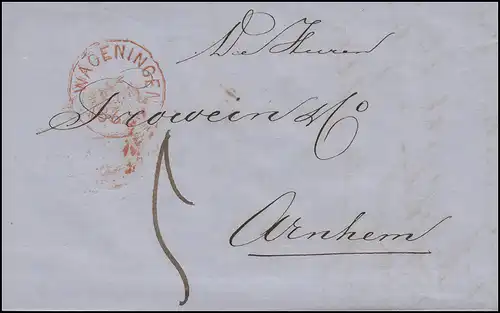 De Heeren
WAGENINGEN
Frowein & Co
5
Arnhem